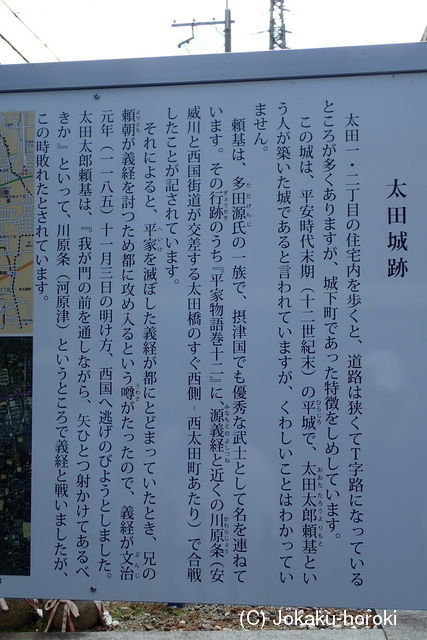 太田城跡
太田一・二丁目の住宅内を歩くと、道路は狭くてT字路になっている
ところが多くありますが、城下町であった特徴をしめしています。
この城は、平安時代末期（十二世紀末）の平城で、太田太郎頼基とい
う人が築いた城であると言われていますが、くわしいことはわかってい
ません。
頼基は、多田源氏の一族で、摂津国でも優秀な武士として名を連ねて
います。その行跡のうち『平家物語巻十二』に、源義経と近くの川原条（安
威川と西国街道が交差する太田橋のすぐ西側－西太田町あたり）で合戦
したことが記されています。
それによると、平家を滅ぼした義経が都にとどまっていたとき、兄の
頼朝が義経を討つため都に攻め入るという噂がたったので、義経が文治
元年（一一八五）十一月三日の明け方、西国へ逃げのびようとしました。
太田太郎頼基は、『我が門の前を通しながら、矢ひとつ射かけてあるべ
きか』といって、川原条（河原津）というところで義経と戦いましたが、
この時敗れたとされています。
(C) Jokaku-horoki